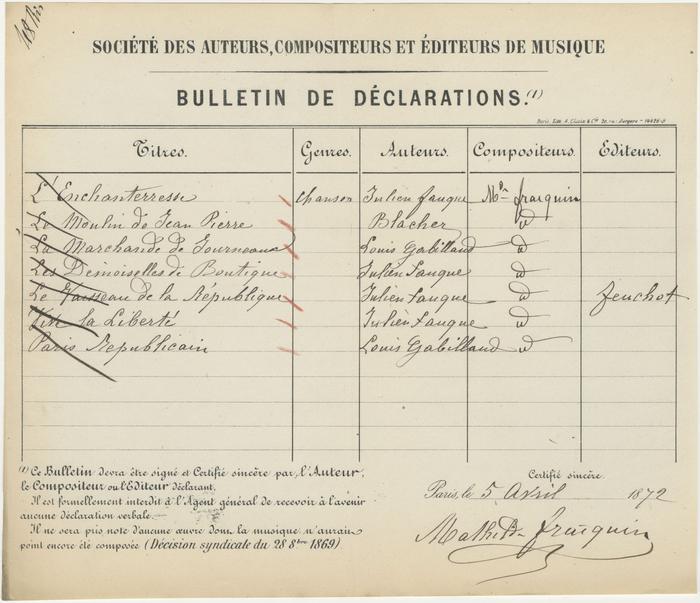 18 bis
SOCIÉTÉ DES AUTEURS, COMPOSITEURS ET ÉDITEURS DE MUSIQUE
BULLETIN DE DÉCLARATIONS.(1)
Titres. Genres. Auteurs. Compositeurs. Editeurs.
L'Enchanterresse chanson Julien fauque Mde fraiquin
Le Moulin de Jean Pierre Blacher id
La Marchande de Tourneaux Louis Gabillaud id
Les Demoiselles de Boutique Julien Fauque id
Le Vaisseau de la République Julien fauque id feuchot
Vive la Liberté Julien fauque id
Paris Republicain Louis Gabillaud id
(1) Ce Bulletin devra être signé et Certifié sincère par, l'Auteur,
le Compositeur ou l'Editeur déclarant.
Il est formellement interdit à l'Agent général de recevoir à l'avenir
aucune déclaration verbale.
Il ne sera pris note d'aucune œuvre dont la musique n'aurait
point encore été composée (Décision syndicale du 28 8bre 1869)
Certifié sincère
Paris, le 5 Avril 1872
Mathilde fraiquin